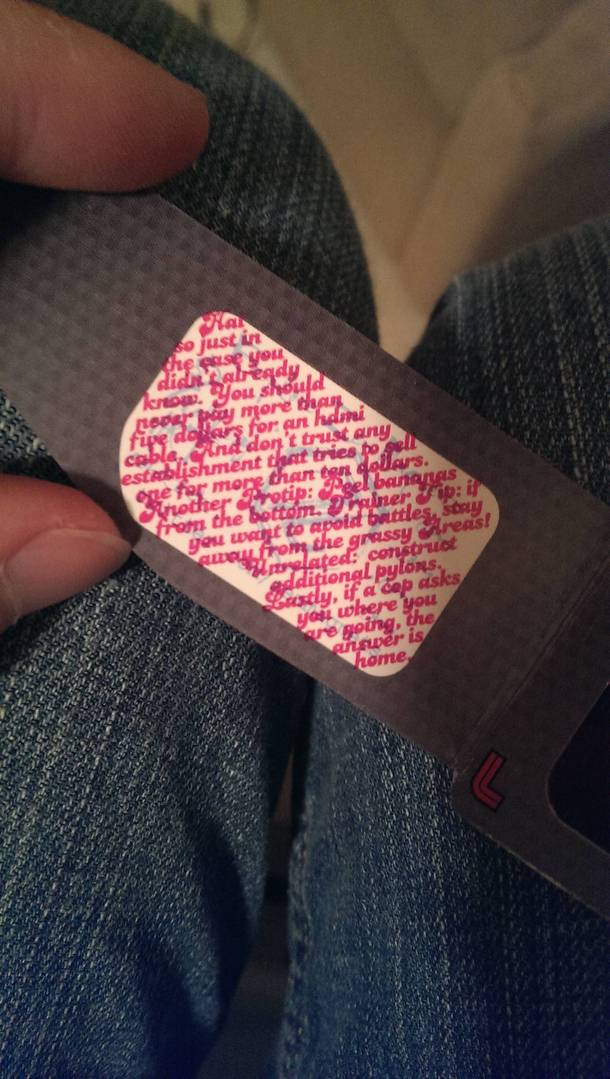 Hai
so just in
the case you
didn't already
know. You should
never pay more than
five dollars for an hdmi
cable. And don't trust any
establishment that tries to sell
one for more than ten dollars.
Another Protip: Peel bananas
from the bottom. Trainer Tip: if
you want to avoid battles, stay
away from the grassy Areas!
Unrelated: construct
additional pylons.
Lastly, if a cop asks
you where you
are going, the
answer is
home.
L